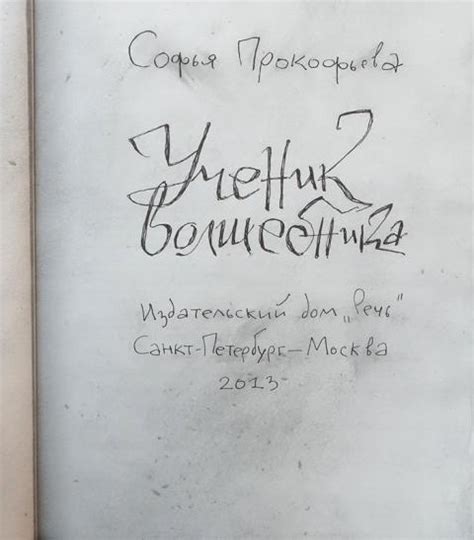 Софья Прокофьева
Ученик
волшебника
Издательский дом „Речь"
Санкт-Петербург–Москва
2013